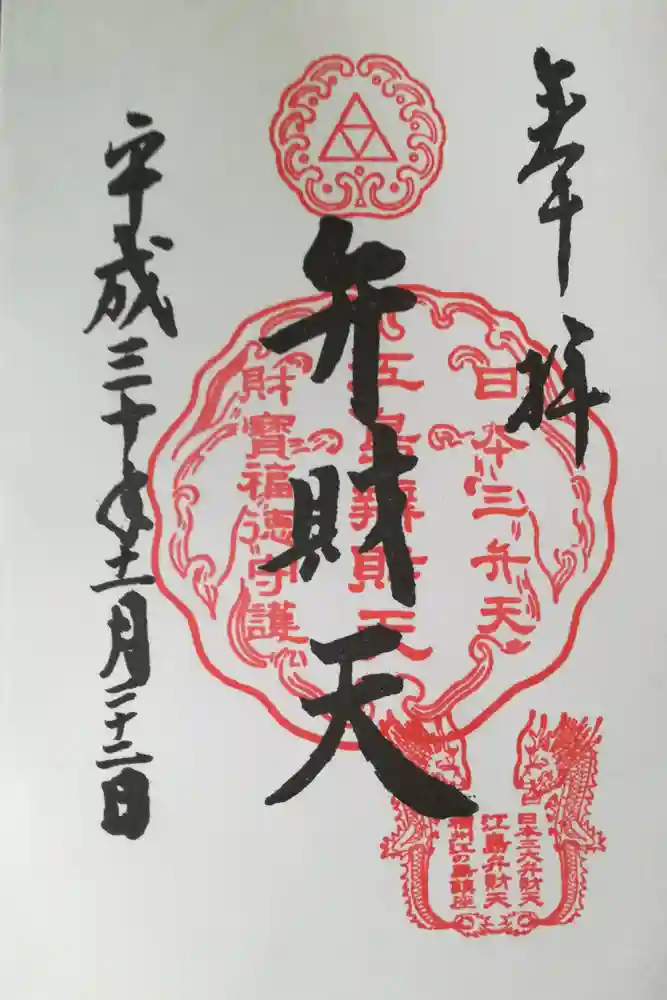 奉拝
日本三弁天
江五皇辨財天
財寶福徳守護
弁財天
日本三大弁財天
江島弁財天
相州江の島鎮座
平成三十年十一月二十二日